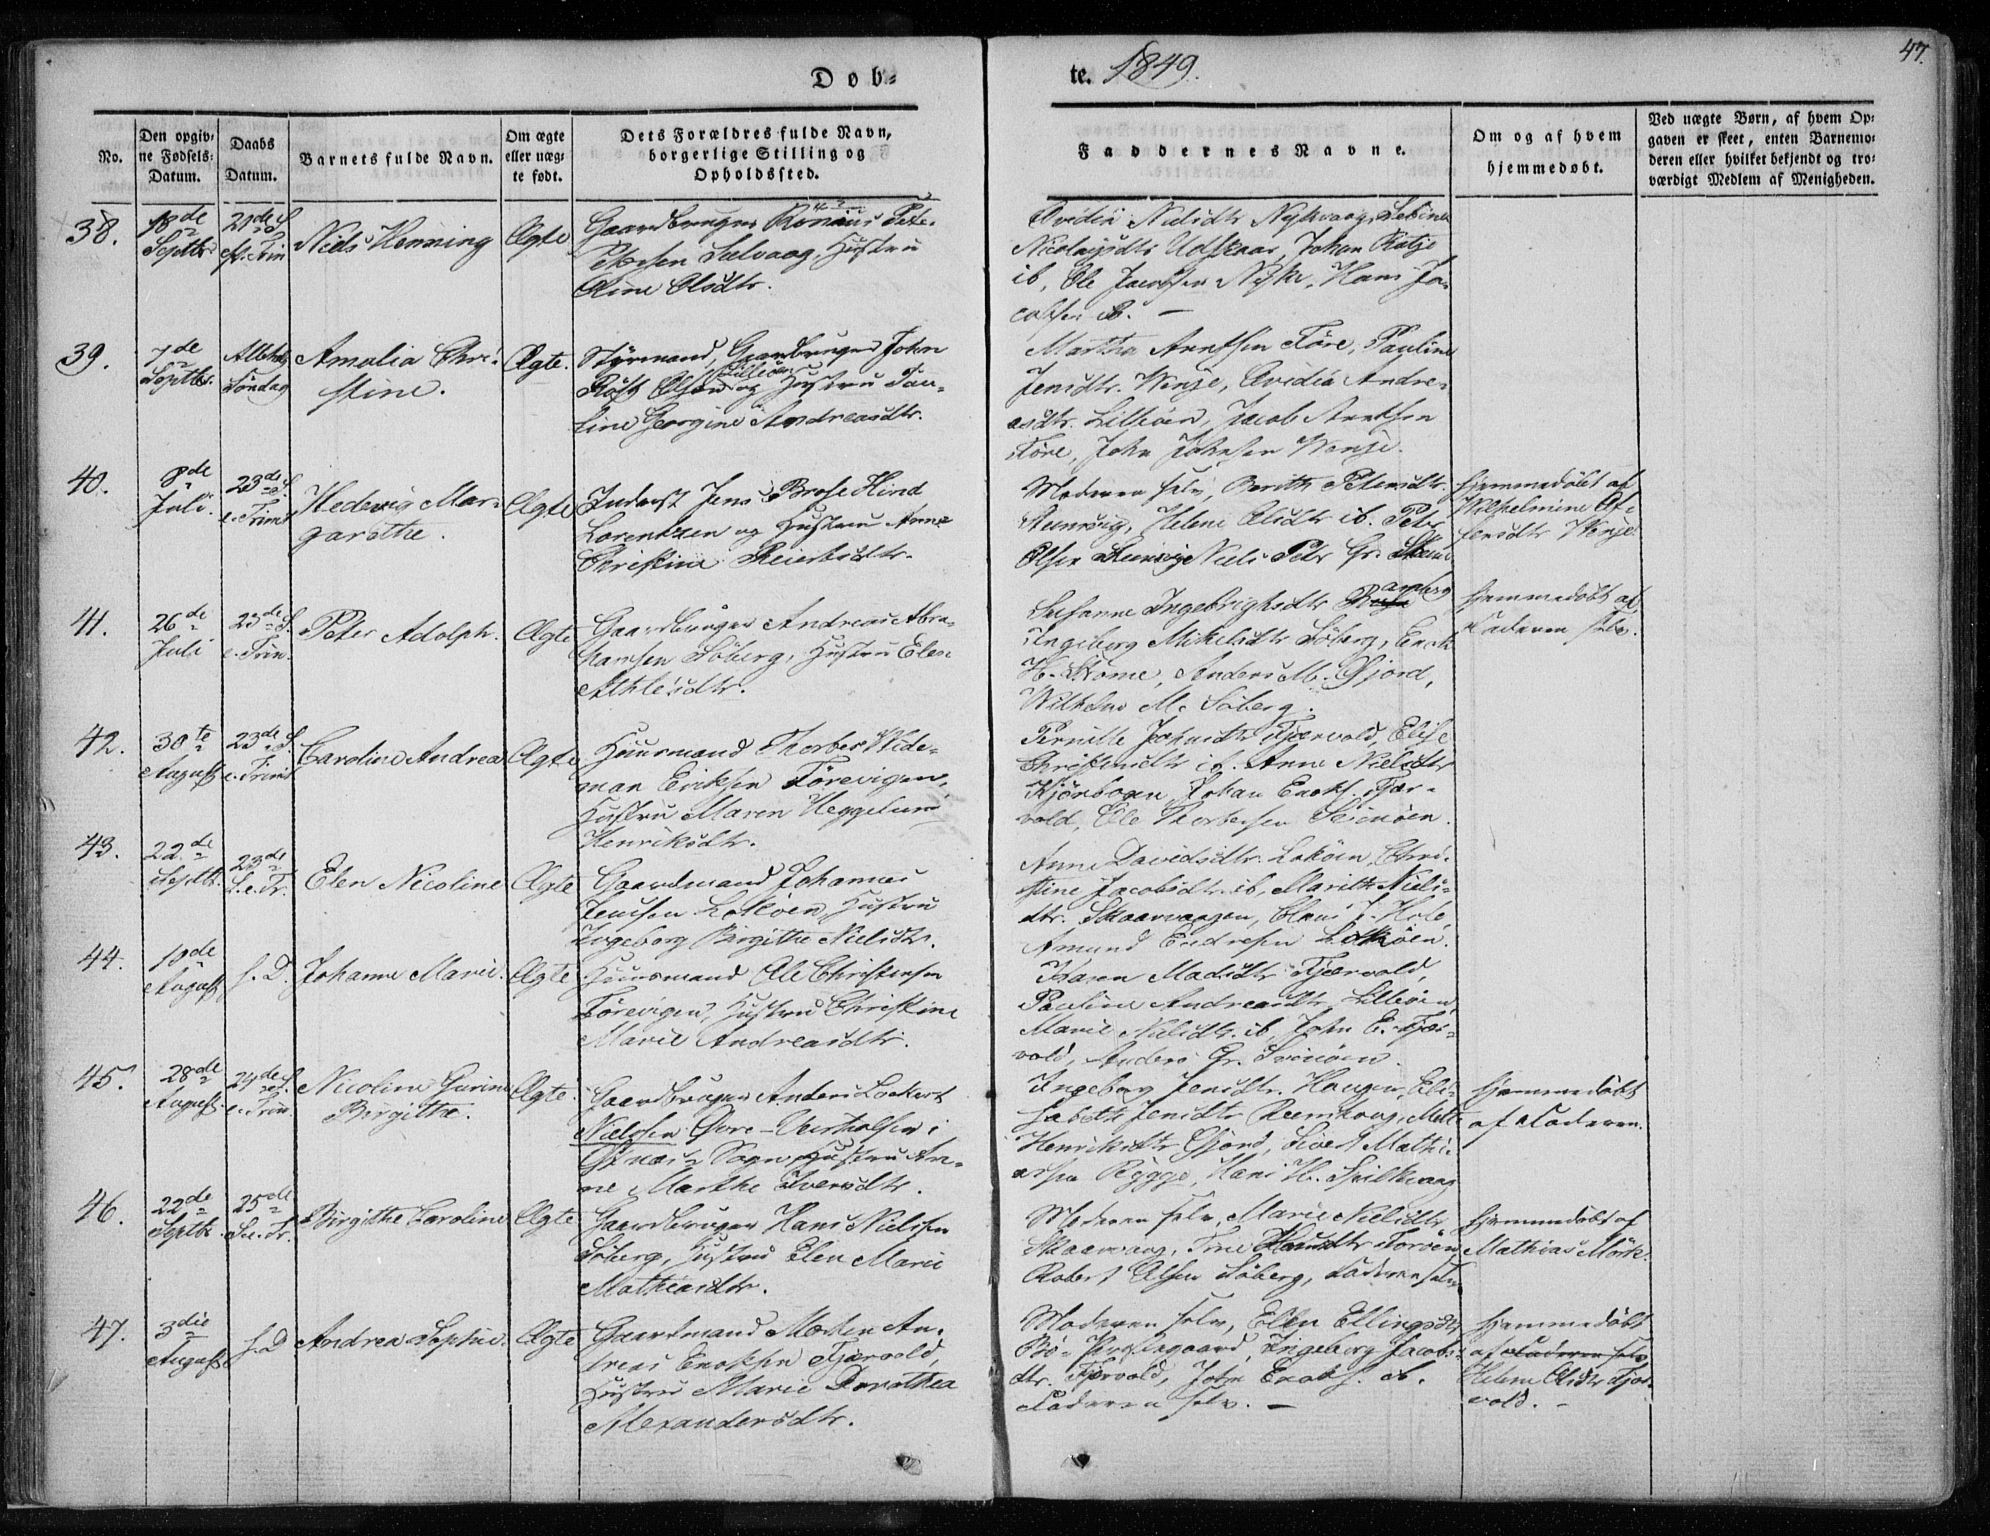 Døb-
te. 1849.
47.
No.
Den opgiv-
ne Fødsels-
Datum.
Daabs
Datum.
Barnets fulde Navn.
Om ægte
eller uæg-
te født.
Dets Forældres fulde Navn,
borgerlige Stilling og
Opholdssted.
Faddernes Navne.
Om og af hvem
hjemmedøbt.
Ved uægte Børn, af hvem Op-
gaven er skeet, enten Barnemo-
deren eller hvilket bekjendt og tro-
værdigt Medlem af Menigheden.
38.
18de
Septbr
21de S.
e. Trin
Niels Henning
Ægte
Gaardbruger
Petersen Selvaag, Hustru
Olsdtr.
Ovedia Nielsdtr Nykvaag,
Nicolaysdtr Udskaar, Johan
ib, Ole Jacobsen Nyke, Hans Ja-
cobsen ib. —
39.
7de
Septbr.
Allehelg.
Søndag
Amalia Chri-
stine.
Ægte.
Styrmand, Gaardbruger John
Røst Olsen Lilleøen og Hustru Pau-
line Georgine Andreasdtr.
Martha Arntsen Føre, Pauline
Jensdtr. Wenje, Ovidia Andre-
asdtr. Lilleøen, Jacob Arntsen
Føre, John Johnsen Wenje.
40.
8de
Juli.
23de S.
e. Trinit
Hedevig Mar-
garethe.
Ægte
Inderst Jens Brose Hind
Lorentzen og Hustru Anne
Christine Reiertsdtr.
Moderen selv, Berith Petersdtr.
Helene Olsdtr ib. Peter
Olsen Niels Petr Gr.
Hjemmedøbt af
Wilhelmine
Wenje
41.
26de
Juli
23de S.
e. Trin.
Peter Adolph.
Ægte
Gaardbruger Andreas Abra-
hamsen Søberg, Hustru Elen
Susanne Ingebrigtsdtr
Ingeborg Mikelsdtr Søberg, Enok
H. Strøme, Anders M. Gjord,
Wilhelm M. Søberg.
Hjemmedøbt af
Faderen selv.
42.
30te
August
23de S.
e. Trinit
Caroline Andrea
Ægte
Huusmand Thorber Wide-
man Eriksen Førevigen,
Hustru Maren Heggelund
Henriksdtr.
Pernille Johnsdtr Fjærvold, Elise
Christensdtr ib. Anne Nielsdtr
Kjørbogen, Johan Enoks. Fjær-
vold, Ole Thorbersen Svinøen.
43.
22de
Septbr.
23de
S. e. Tr.
Elen Nicoline
Ægte
Gaardmand Johannes
Jensen Lokøen, Hustru
Ingeborg Birgithe Nielsdtr.
Anne Davidsdtr. Lokøen, Chri-
stine Jacobsdtr. ib, Marith Niels-
dtr. Skaarvaagen, Claus J. Hole
Amund Endresen Lokøen.
44.
10de
August
s. D.
Johanne Marie.
Ægte
Huusmand Ole Christensen
Førevigen, Hustru Christine
Marie Andreasdtr.
Karen Madsdtr Fjærvold,
Pauline Andreasdtr Lilleøen
Marie Nielsdtr. ib, John E. Fjær-
vold, Anders Gr. Svinøen.
45.
28de
August.
24de S.
e. Trin.
Nicoline Gurine
Birgithe.
Ægte.
Gaardbruger Anders Lockert
Nielsen Øvre-Vestholsen i
Øxnæs Sogn, Hustru An-
ne Marthe Iversdtr.
Ingeborg Jensdtr. Haugen, Eli-
sabeth Jensdtr Mette
Henriksdtr Gjord, Sivert Mathi-
assen Rygge, Hans H.
Hjemmedøbt
af Faderen.
46.
22de
Septbr.
25de
S. e. Tr.
Birgithe Caroline
Ægte
Gaardbruger Hans Nielsen
Søberg, Hustru Elen Marie
Mathiasdtr.
Moderen selv, Marie Nielsdtr
Skaarvaag, Trine Hansdtr
Robert Olsen Søberg, Faderen selv
Hjemmedøbt af
Mathias Mørk.
47.
3die
August
s. D
Andrea Sophie.
Ægte
Gaardmand An-
dreas Enoksen Fjærvold,
Hustru Marie Dorothea
Alexandersdtr.
Moderen selv, Elen Ellingsdtr
Bø-Præstegaard, Ingeborg Jacobs-
dtr. Fjærvold, John Enoks. ib.
Faderen selv. —
Hjemmedøbt
af Faderen selv
Helene Olsdtr Fjær-
vold. —